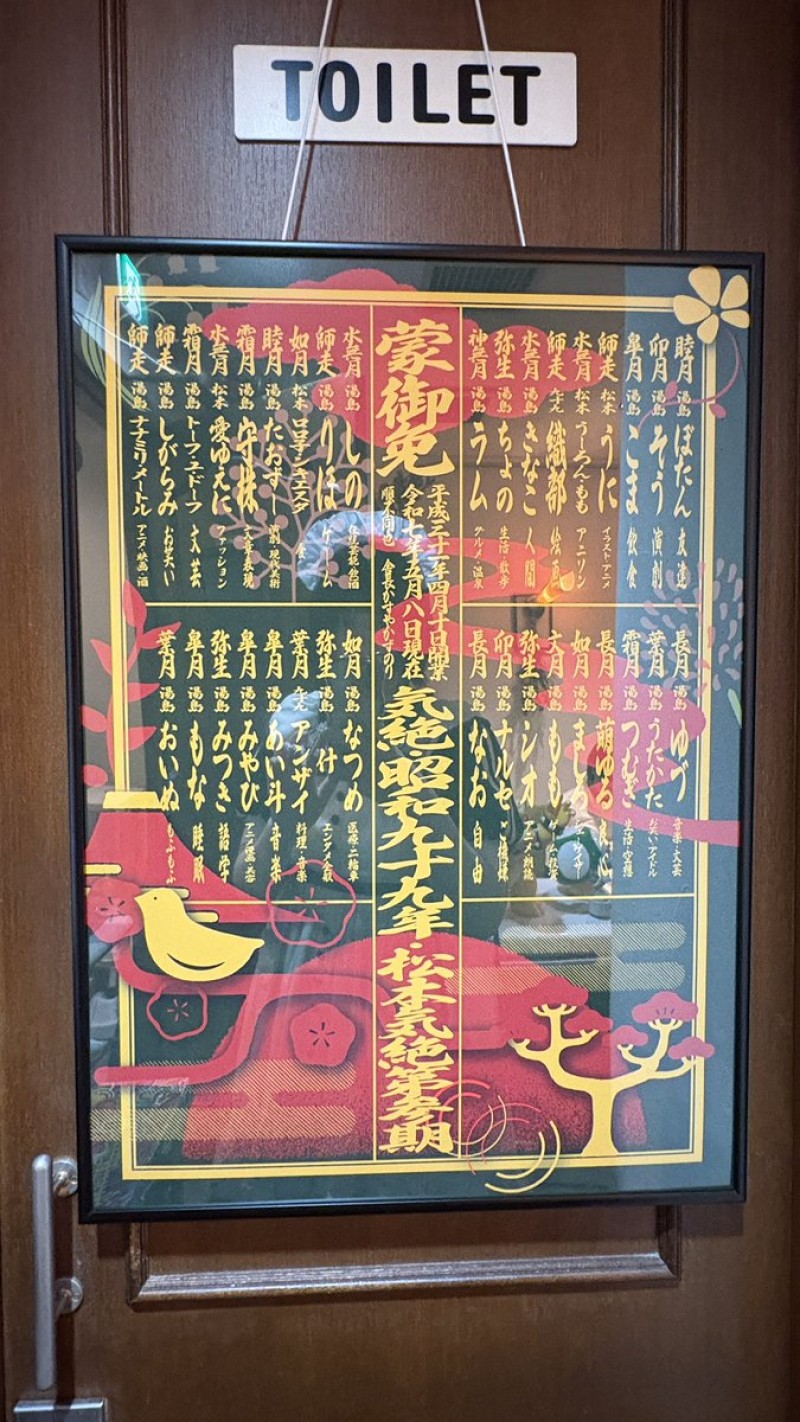 TOILET
睦月 湯島 ぼたん 友達
卯月 湯島 そう 演劇
皐月 湯島 こま 飲食
師走 松本 うに イラスト・アニメ
水無月 松本 うーろん・もも アニソン
師走 織部 絵画
水無月 湯島 きなこ 人間
弥生 湯島 ちょの 生活・散歩
神無月 湯島 ラム グルメ・温泉
長月 湯島 ゆづ 音楽・文芸
葉月 湯島 うたかた お笑い・アイドル
霜月 湯島 つむぎ 生活・空想
長月 湯島 萌ゆる 良心
如月 湯島 ましろ
文月 湯島 もも
弥生 湯島 シオ アニメ・雑誌
卯月 湯島 ナルセ ご機嫌
長月 湯島 なお 自由
蒙御免
平成三十一年四月十日開業
令和七年五月八日現在
順不同也 会長かすやかずのり
気絶昭和九十九年・松本気絶第参期
水無月 湯島 しの 伝統芸能・飲酒
師走 湯島 りほ ゲーム
如月 松本 ロヂ・シキエスタ 食
睦月 湯島 たおすー 演劇・現代美術
霜月 湯島 守株 文章表現
水無月 松本 愛ゆえに ファッション
霜月 湯島 トーフ・ユドーフ 文芸
師走 湯島 しがらみ お笑い
師走 湯島 ナナミリ・メートル アニメ・映画・酒
如月 湯島 なつめ 医療・二輪車
弥生 湯島 叶 エンタメ全般
葉月 アンザイ 料理・音楽
皐月 湯島 あい斗 音楽
皐月 湯島 みやび アニメ・漫画・美容
弥生 湯島 みつき 語学
皐月 湯島 もな 睡眠
葉月 湯島 おいぬ もふもふ